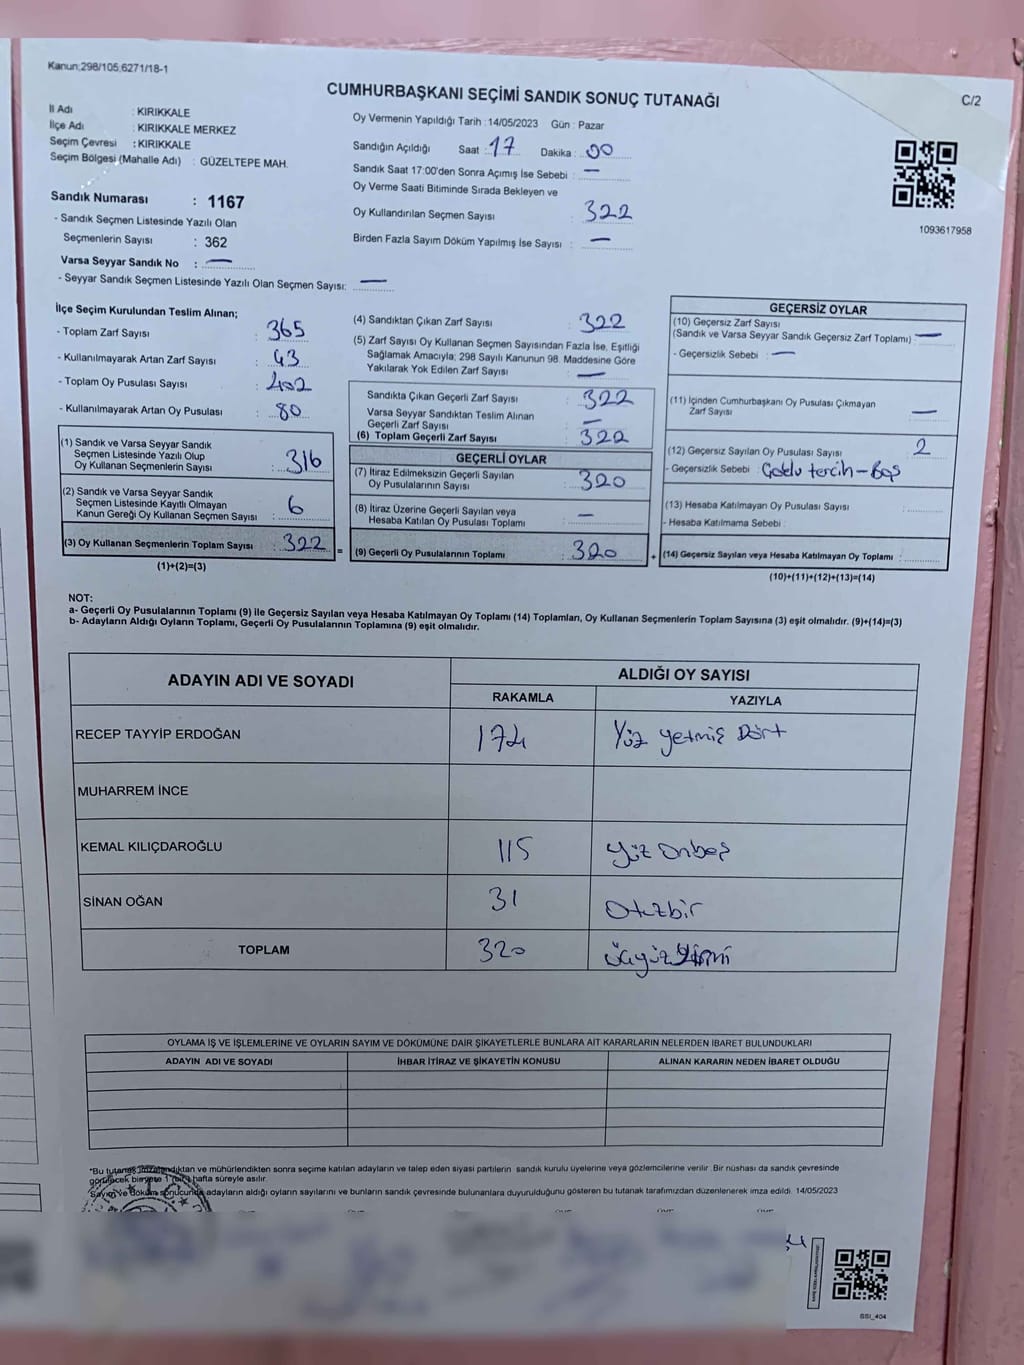 Kanun:298/105,6271/18-1
CUMHURBAŞKANI SEÇİMİ SANDIK SONUÇ TUTANAĞI
C/2
İl Adı : KIRIKKALE
İlçe Adı : KIRIKKALE MERKEZ
Seçim Çevresi : KIRIKKALE
Seçim Bölgesi (Mahalle Adı) : GÜZELTEPE MAH.
Sandık Numarası : 1167
- Sandık Seçmen Listesinde Yazılı Olan
Seçmenlerin Sayısı : 362
Varsa Seyyar Sandık No : —
- Seyyar Sandık Seçmen Listesinde Yazılı Olan Seçmen Sayısı: —
Oy Vermenin Yapıldığı Tarih : 14/05/2023 Gün : Pazar
Sandığın Açıldığı Saat : 17 Dakika : 00
Sandık Saat 17:00'den Sonra Açımış İse Sebebi : —
Oy Verme Saati Bitiminde Sırada Bekleyen ve
Oy Kullandırılan Seçmen Sayısı : 322
Birden Fazla Sayım Döküm Yapılmış İse Sayısı : —
1093617958
İlçe Seçim Kurulundan Teslim Alınan;
- Toplam Zarf Sayısı : 365
- Kullanılmayarak Artan Zarf Sayısı : 43
- Toplam Oy Pusulası Sayısı : 402
- Kullanılmayarak Artan Oy Pusulası : 80
(1) Sandık ve Varsa Seyyar Sandık
Seçmen Listesinde Yazılı Olup
Oy Kullanan Seçmenlerin Sayısı : 316
(2) Sandık ve Varsa Seyyar Sandık
Seçmen Listesinde Kayıtlı Olmayan
Kanun Gereği Oy Kullanan Seçmen Sayısı : 6
(3) Oy Kullanan Seçmenlerin Toplam Sayısı : 322 =
(1)+(2)=(3)
(4) Sandıktan Çıkan Zarf Sayısı : 322
(5) Zarf Sayısı Oy Kullanan Seçmen Sayısından Fazla İse, Eşitliği
Sağlamak Amacıyla; 298 Sayılı Kanunun 98. Maddesine Göre
Yakılarak Yok Edilen Zarf Sayısı : —
Sandıkta Çıkan Geçerli Zarf Sayısı : 322
Varsa Seyyar Sandıktan Teslim Alınan
Geçerli Zarf Sayısı : —
(6) Toplam Geçerli Zarf Sayısı : 322
GEÇERLİ OYLAR
(7) İtiraz Edilmeksizin Geçerli Sayılan
Oy Pusulalarının Sayısı : 320
(8) İtiraz Üzerine Geçerli Sayılan veya
Hesaba Katılan Oy Pusulası Toplamı : —
(9) Geçerli Oy Pusulalarının Toplamı : 320 +
GEÇERSİZ OYLAR
(10) Geçersiz Zarf Sayısı
(Sandık ve Varsa Seyyar Sandık Geçersiz Zarf Toplamı) : —
- Geçersizlik Sebebi : —
(11) İçinden Cumhurbaşkanı Oy Pusulası Çıkmayan
Zarf Sayısı : —
(12) Geçersiz Sayılan Oy Pusulası Sayısı : 2
- Geçersizlik Sebebi tercih - Boş
(13) Hesaba Katılmayan Oy Pusulası Sayısı :
- Hesaba Katılmama Sebebi :
(14) Geçersiz Sayılan veya Hesaba Katılmayan Oy Toplamı :
(10)+(11)+(12)+(13)=(14)
NOT:
a- Geçerli Oy Pusulalarının Toplamı (9) ile Geçersiz Sayılan veya Hesaba Katılmayan Oy Toplamı (14) Toplamları, Oy Kullanan Seçmenlerin Toplam Sayısına (3) eşit olmalıdır. (9)+(14)=(3)
b- Adayların Aldığı Oyların Toplamı, Geçerli Oy Pusulalarının Toplamına (9) eşit olmalıdır.
ADAYIN ADI VE SOYADI ALDIĞI OY SAYISI
RAKAMLA YAZIYLA
RECEP TAYYİP ERDOĞAN 174 Yüz yetmiş Dört
MUHARREM İNCE
KEMAL KILIÇDAROĞLU 115 yüz onbeş
SİNAN OĞAN 31 Otuzbir
TOPLAM 320 üçyüz yirmi
OYLAMA İŞ VE İŞLEMLERİNE VE OYLARIN SAYIM VE DÖKÜMÜNE DAİR ŞİKAYETLERLE BUNLARA AİT KARARLARIN NELERDEN İBARET BULUNDUKLARI
ADAYIN ADI VE SOYADI İHBAR İTİRAZ VE ŞİKAYETİN KONUSU ALINAN KARARIN NEDEN İBARET OLDUĞU
*Bu tutanak imzalandıktan ve mühürlendikten sonra seçime katılan adayların ve talep eden siyasi partilerin sandık kurulu üyelerine veya gözlemcilerine verilir. Bir nüshası da sandık çevresinde
görülecek bir yere 1 (bir) hafta süreyle asılır.
*Sayım ve döküm sonucunda adayların aldığı oyların sayılarını ve bunların sandık çevresinde bulunanlara duyurulduğunu gösteren bu tutanak tarafımızdan düzenlenerek imza edildi. 14/05/2023
GSI_404